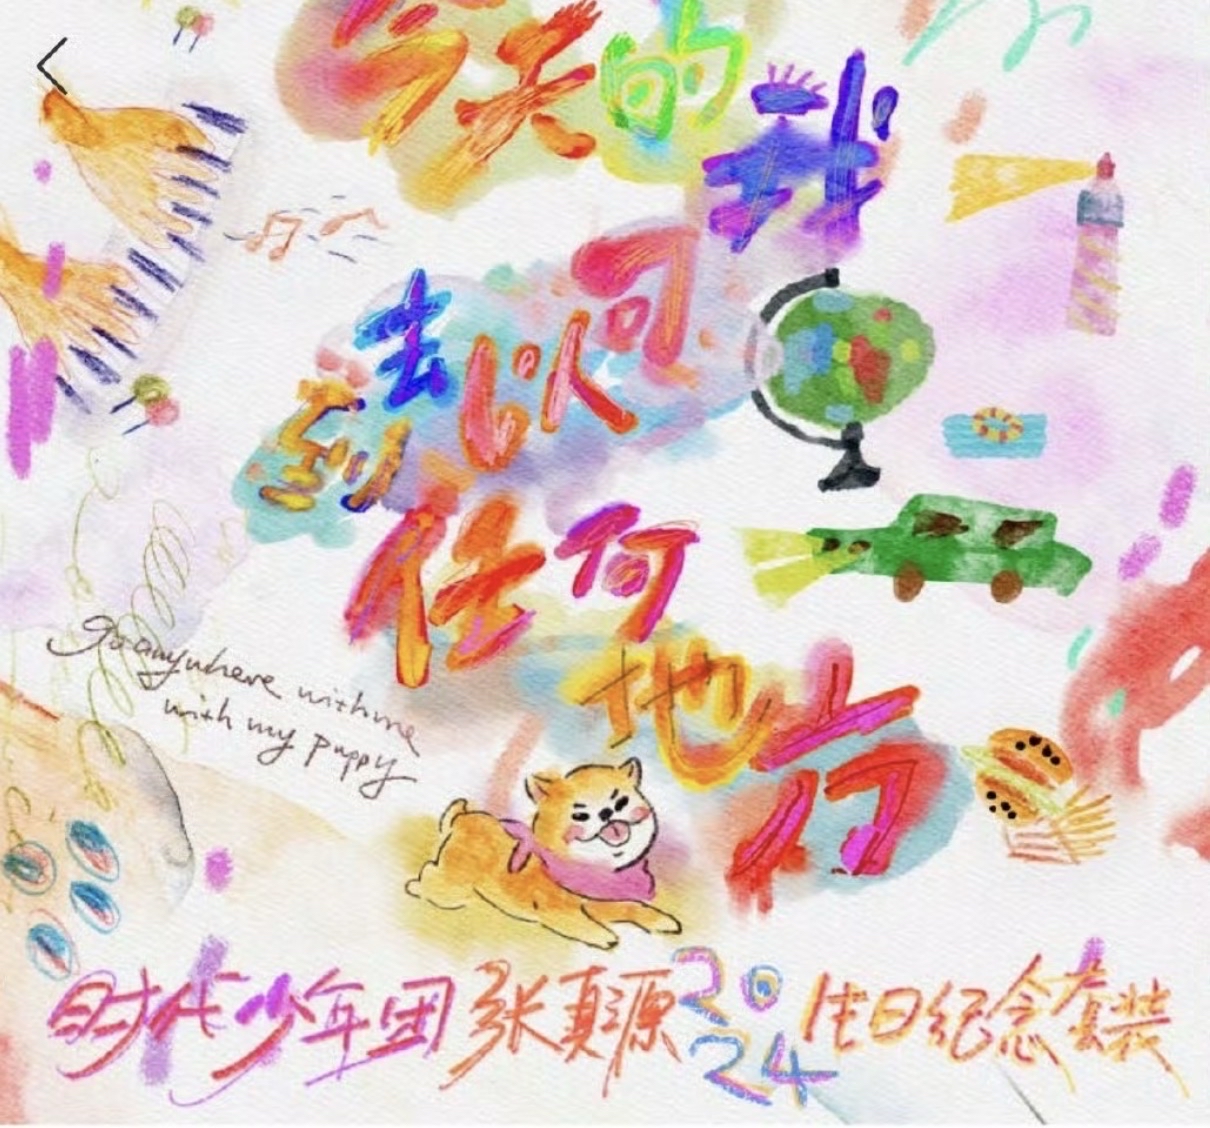 今天的我
可以去到
任何
地方
go anywhere with me
with my puppy
时代少年团 张真源 2024 生日纪念套装